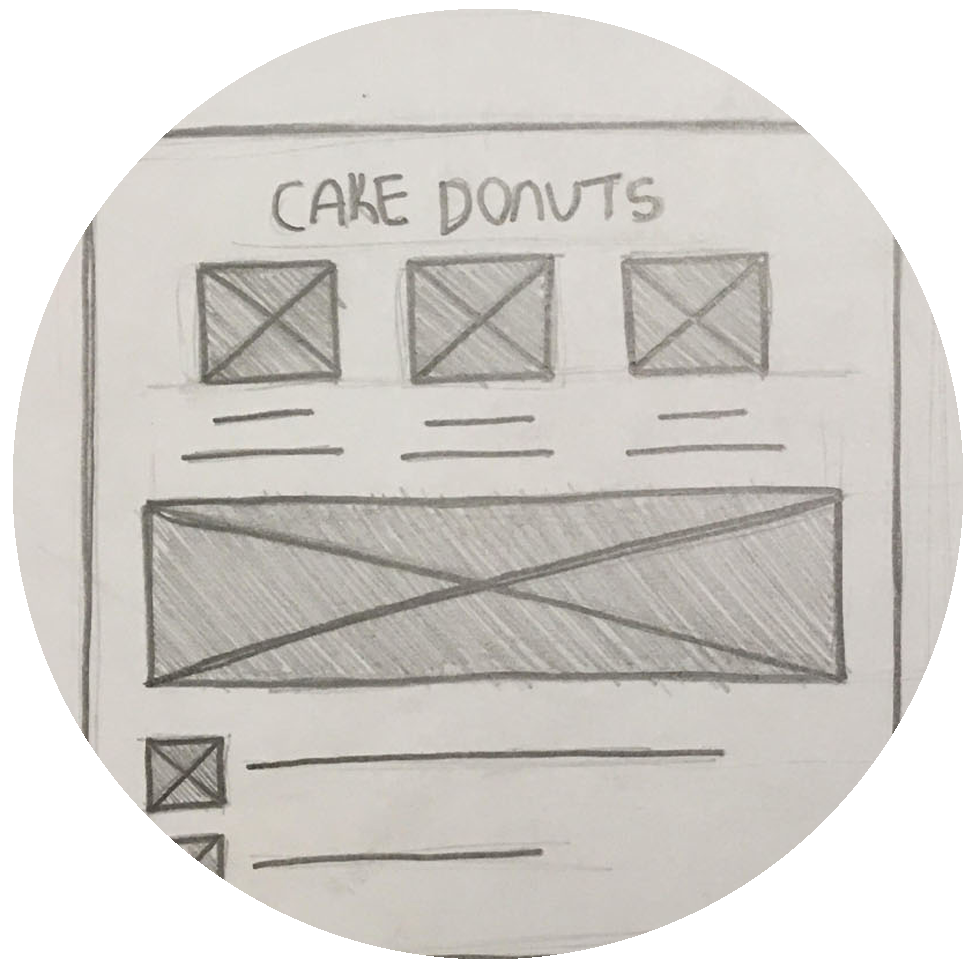 CAKE DONUTS